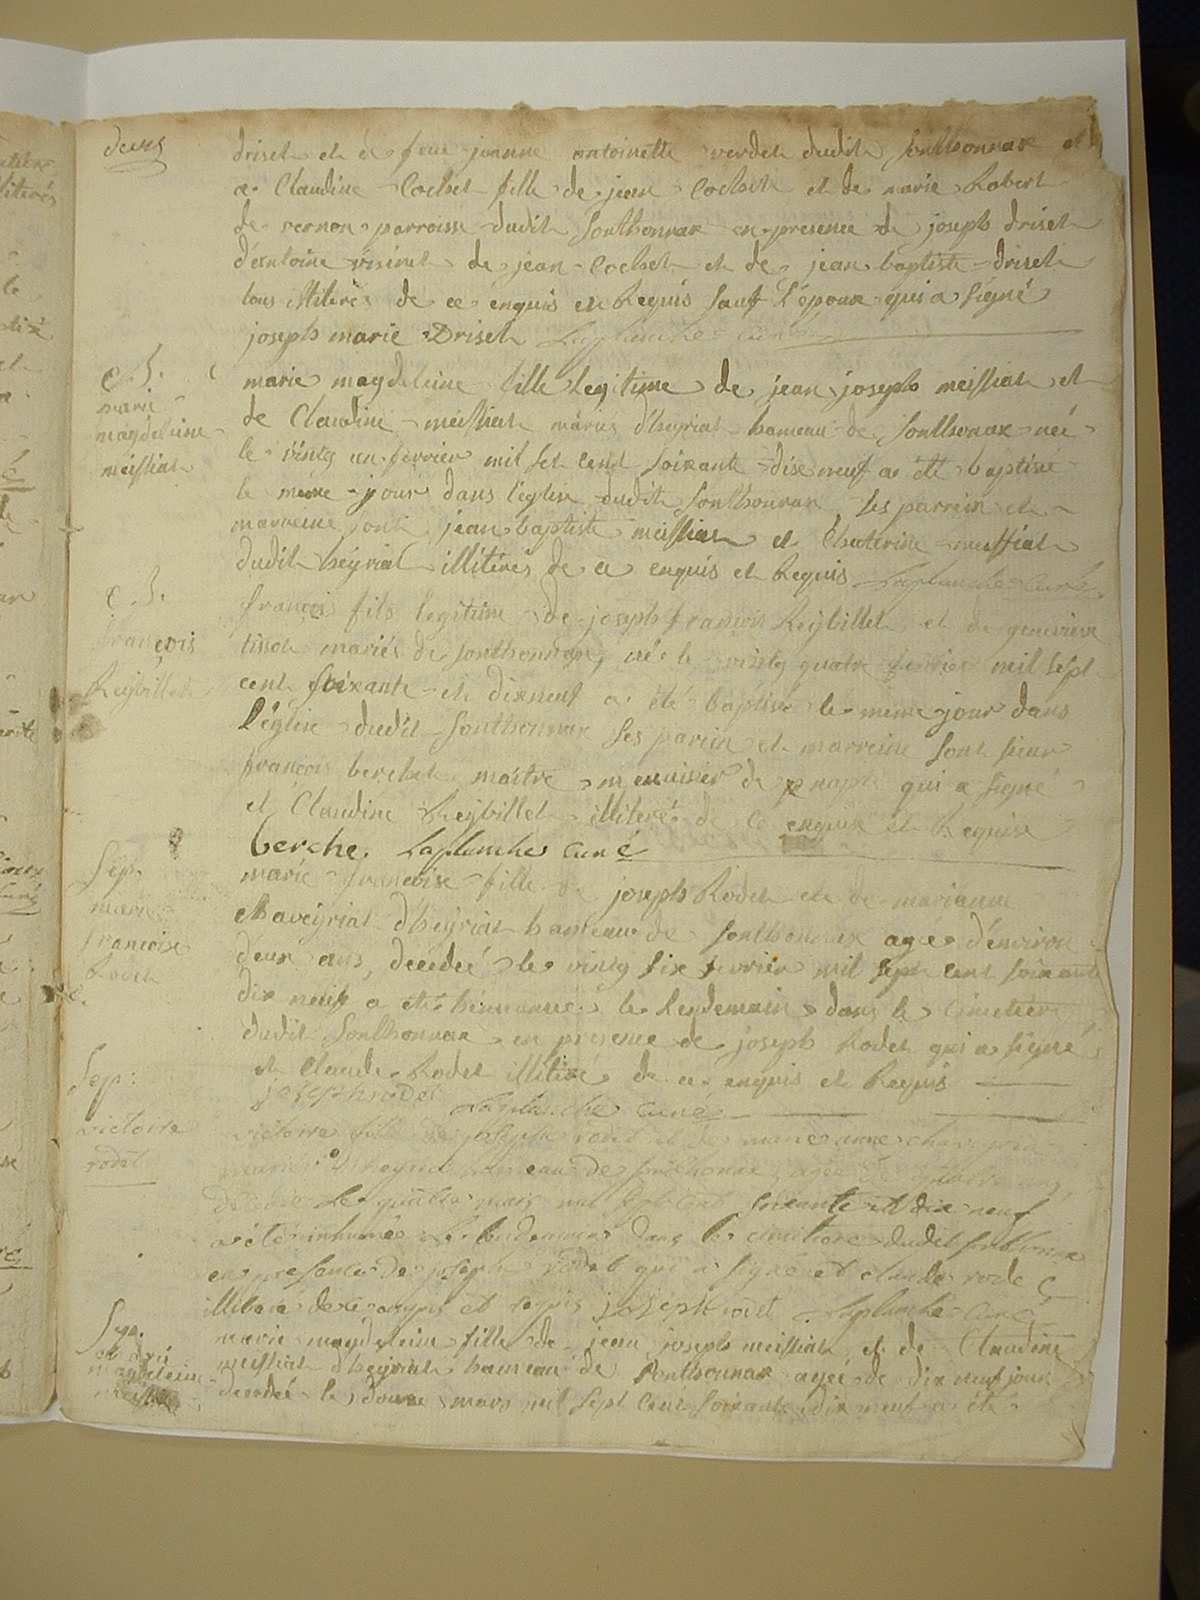 deux
driset et de feue jeanne antoinette verdet dudit sonthonnax et
a Claudine Cochet fille de jean Cochet et de marie Robert
de vernon parroisse dudit sonthonnax en presence de joseph driset
d'antoine visinet de jean Cochet et de jean baptiste driset
tous illiterés de ce enquis et Requis sauf l'époux qui a signé
joseph marie Driset Laplanche curé
B.
marie
magdeleine
meissiat
marie magdeleine fille legitime de jean joseph meissiat et
de Claudine meissiat mariés d'heyriat hameau de sonthonax née
le vintg un fevrier mil set cent soixante dix neuf a été baptisé
le meme jour dans l'eglise dudit sonthonnax ses parrein et
marreine sont jean baptiste meissiat et Chaterine meissiat
dudit heyriat illiterés de ce enquis et Requis Laplanche Curé
B.
françois
Reybillet
françois fils legitime de joseph françois Reybillet et de genevieve
tissot mariés de sonthonnax né le vintg quatre fevrier mil sept
cent soixante et dixneuf a été baptisé le meme jour dans
L'église dudit sonthonnax ses parein et marreine sont sieur
françois berchet maitre menuisier de qui a signé
et Claudine Reybillet illiteré de ce enquise et Requise
berche. Laplanche curé
Sep.
marie
francoise
Rodet
marie francoise fille de joseph Rodet et de marianne
Chaveyriat d'heyriat hameau de sonthonnax agée d'environ
deux ans, decedeé le vintg six fevrier mil sept cent soixante
dix neuf a eté hinnumée le lendemain dans le cimetiere
dudit sonthonnax en presence de joseph Rodet qui a signé
et Claude Rodet illitéré de ce enquis et Requis
joseph rodet Laplanche curé
Sep:
victoire
rodet
victoire fille de joseph rodet et de marie anne
mariés d'heyria hameau de sonthonax agée de
decedée le quatre mars mil sept cent soixante et dix neuf
a été inhumée le lendemain dans le cimitiere dudit sonthonax
en presence de joseph rodet qui a signé et claude rodet
illiteré de ce enquis et requis joseph rodet Laplanche curé
Sep.
marie
magdeleine
meissiat
marie magdeleine fille de jean joseph meissiat et de Claudine
meissiat d'heyriat hameau de sonthonnax ageé de dix neuf jour
decedeé le douze mars mil sept cent soixante dix neuf a été